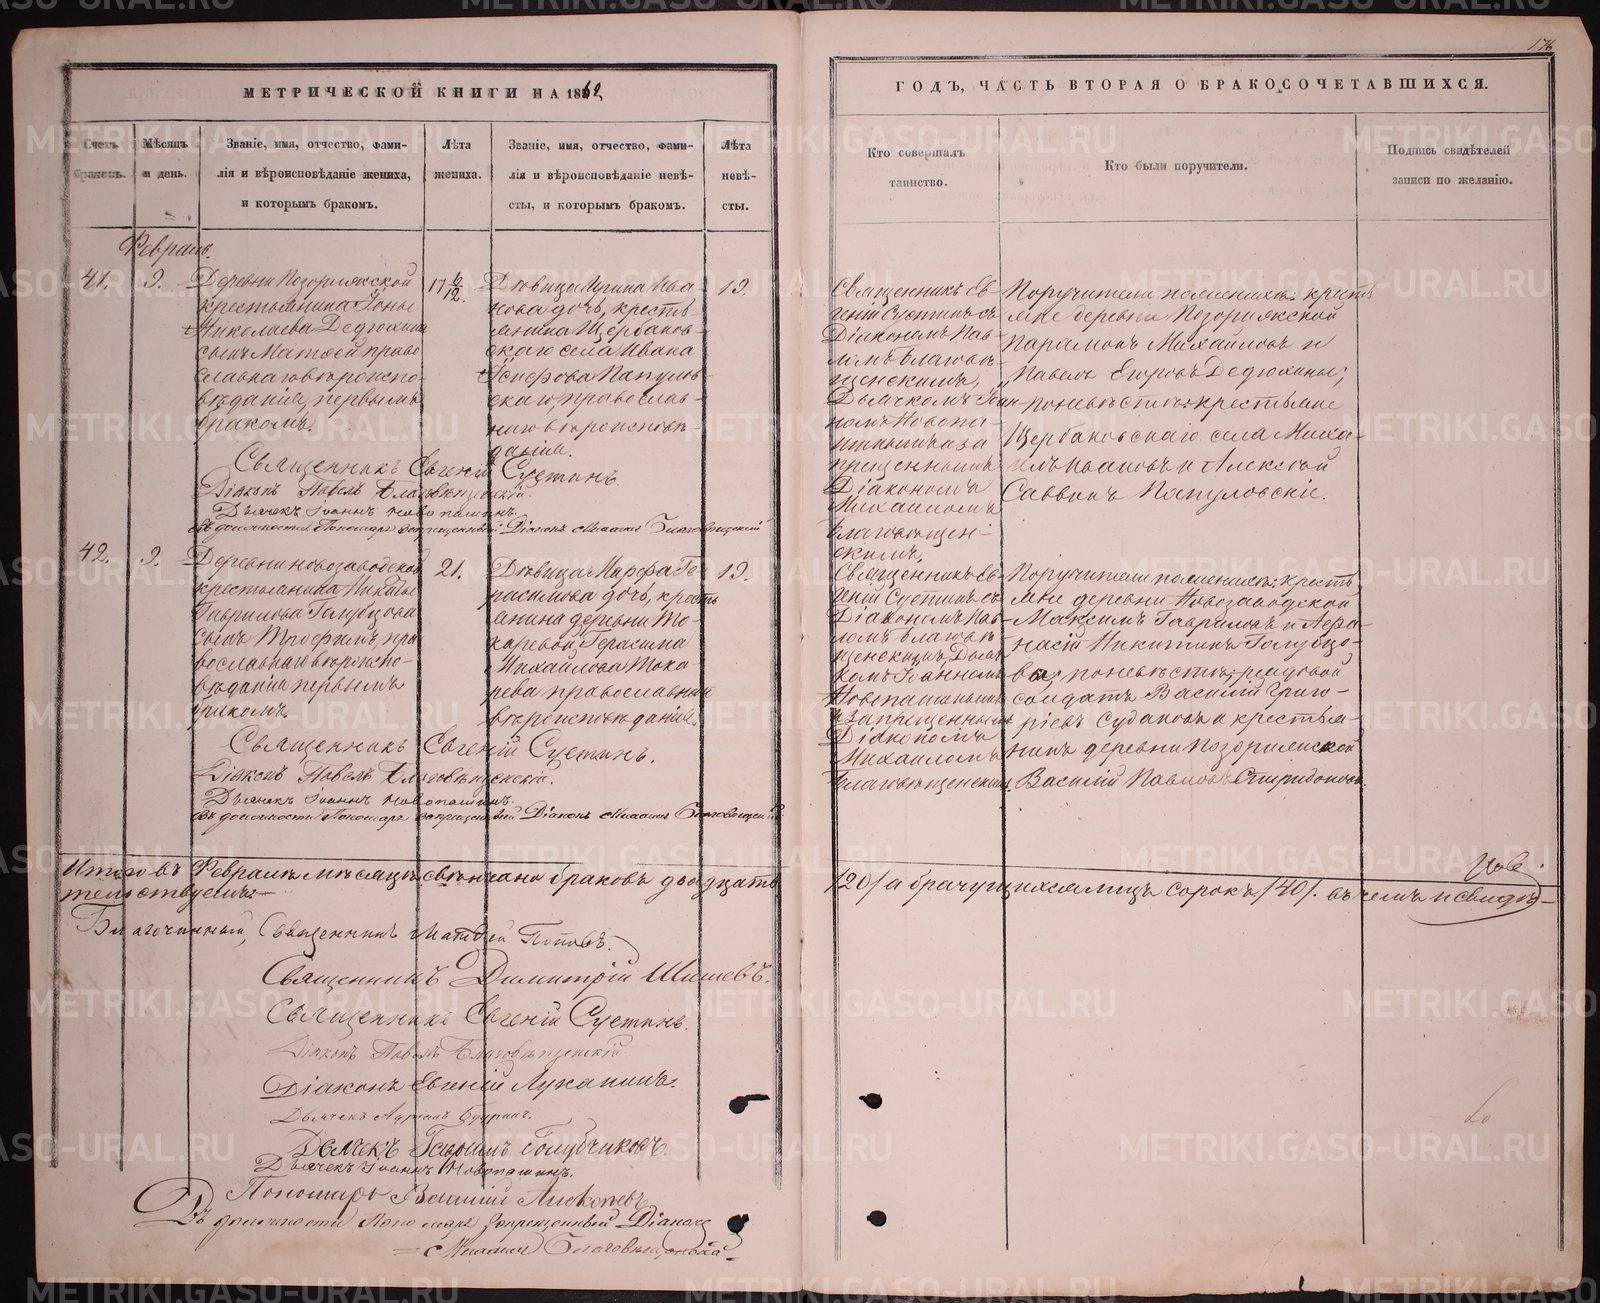 176
МЕТРИЧЕСКОЙ КНИГИ НА 1862
Счетъ браковъ.
Мѣсяцъ и день.
Званіе, имя, отчество, фами-
лія и вѣроисповѣданіе жениха,
и которымъ бракомъ.
Лѣта
жениха.
Званіе, имя, отчество, фами-
лія и вѣроисповѣданіе невѣ-
сты, и которымъ бракомъ.
Лѣта
невѣ-
сты.
Февраль.
41.
9.
Деревни Позорихской
крестьянина Іоны
Николаева Дедюхина
сынъ Матѳей право
славнаго вѣроиспо-
вѣданія, первымъ
бракомъ.
17 6/12.
Дѣвица Ирина Ива
нова дочь, кресть
янина Щербаков-
скаго села Ивана
скаго, православ-
наго вѣроисповѣ-
данія.
19.
Священникъ Евгеній Суетинъ.
Діаконъ Павелъ Благовѣщенскій.
Дьячекъ Іоаннъ Новопашинъ.
въ должности Пономаря запрещенный Діаконъ Михаилъ Благовѣщенскій
42.
9.
Деревни Новозаводской
крестьянина Никиты
Гаврилова Голубцова
сынъ Трофимъ, пра
вославнаго вѣроиспо-
вѣданія первымъ
бракомъ.
21.
Дѣвица Марѳа Ге
расимова дочь, кресть
янина деревни То-
каревой, Герасима
Михайлова Тока-
рева православнаго
вѣроисповѣданія.
19.
Священникъ Евгеній Суетинъ.
Діаконъ Павелъ Благовѣщенскій.
Дьячекъ Іоаннъ Новопашинъ.
въ должности Пономаря запрещенный Діаконъ Михаилъ Благовѣщенскій
Итого въ Февралѣ мѣсяцѣ свѣнчано браковъ двадцать
тельствуемъ.
Благочинный, Священникъ Матвей Поповъ.
Священникъ Димитрій Шишевъ.
Священникъ Евгеній Суетинъ.
Діаконъ Павелъ Благовѣщенскій
Діаконъ Евгеній Луканинъ.
Дьячекъ
Дьячекъ Голубчиковъ.
Дьячекъ Іоаннъ Новопашинъ.
Пономарь Василій Алексѣевъ
Въ должности Пономаря запрещенный Діаконъ
Михаилъ Благовѣщенскій
ГОДЪ, ЧАСТЬ ВТОРАЯ О БРАКОСОЧЕТАВШИХСЯ.
Кто совершалъ
таинство.
Кто были поручители.
Подпись свидѣтелей
записи по желанію.
Священникъ Ев-
геній Суетинъ съ
Діакономъ Пав-
ломъ Благовѣ-
щенскимъ,
Дьячкомъ Іоан-
номъ Новопа-
шинымъ и за
прещеннымъ
Діакономъ
Михаиломъ
Благовѣщен-
скимъ.
Поручители по женихѣ: кресть
яне деревни Позорихской
Парамонъ Михайловъ и
Павелъ Егоровъ Дедюхины;
по невѣстѣ: крестьяне
Щербаковскаго села Миха-
илъ Ивановъ и Алексѣй
Саввинъ
Священникъ Ев-
геній Суетинъ съ
Діакономъ Пав-
ломъ Благовѣ-
щенскимъ, Дьяч-
комъ Іоанномъ
Новопашинымъ
и запрещеннымъ
Діакономъ
Михаиломъ
Благовѣщенскимъ.
Поручители по женихѣ: кресть
яне деревни Новозаводской
Максимъ Гавриловъ и Аѳа-
насій Никитинъ Голубцо-
вы; по невѣстѣ: рядовой
солдатъ Василій Григо-
ріевъ Судаковъ и крестья-
нинъ деревни Позорихской
Василій Павловъ Спиридоновъ.
/20/ а брачущихся лицъ сорокъ /40/. въ чемъ и свидѣ-
METRIKI.GASO-URAL.RU